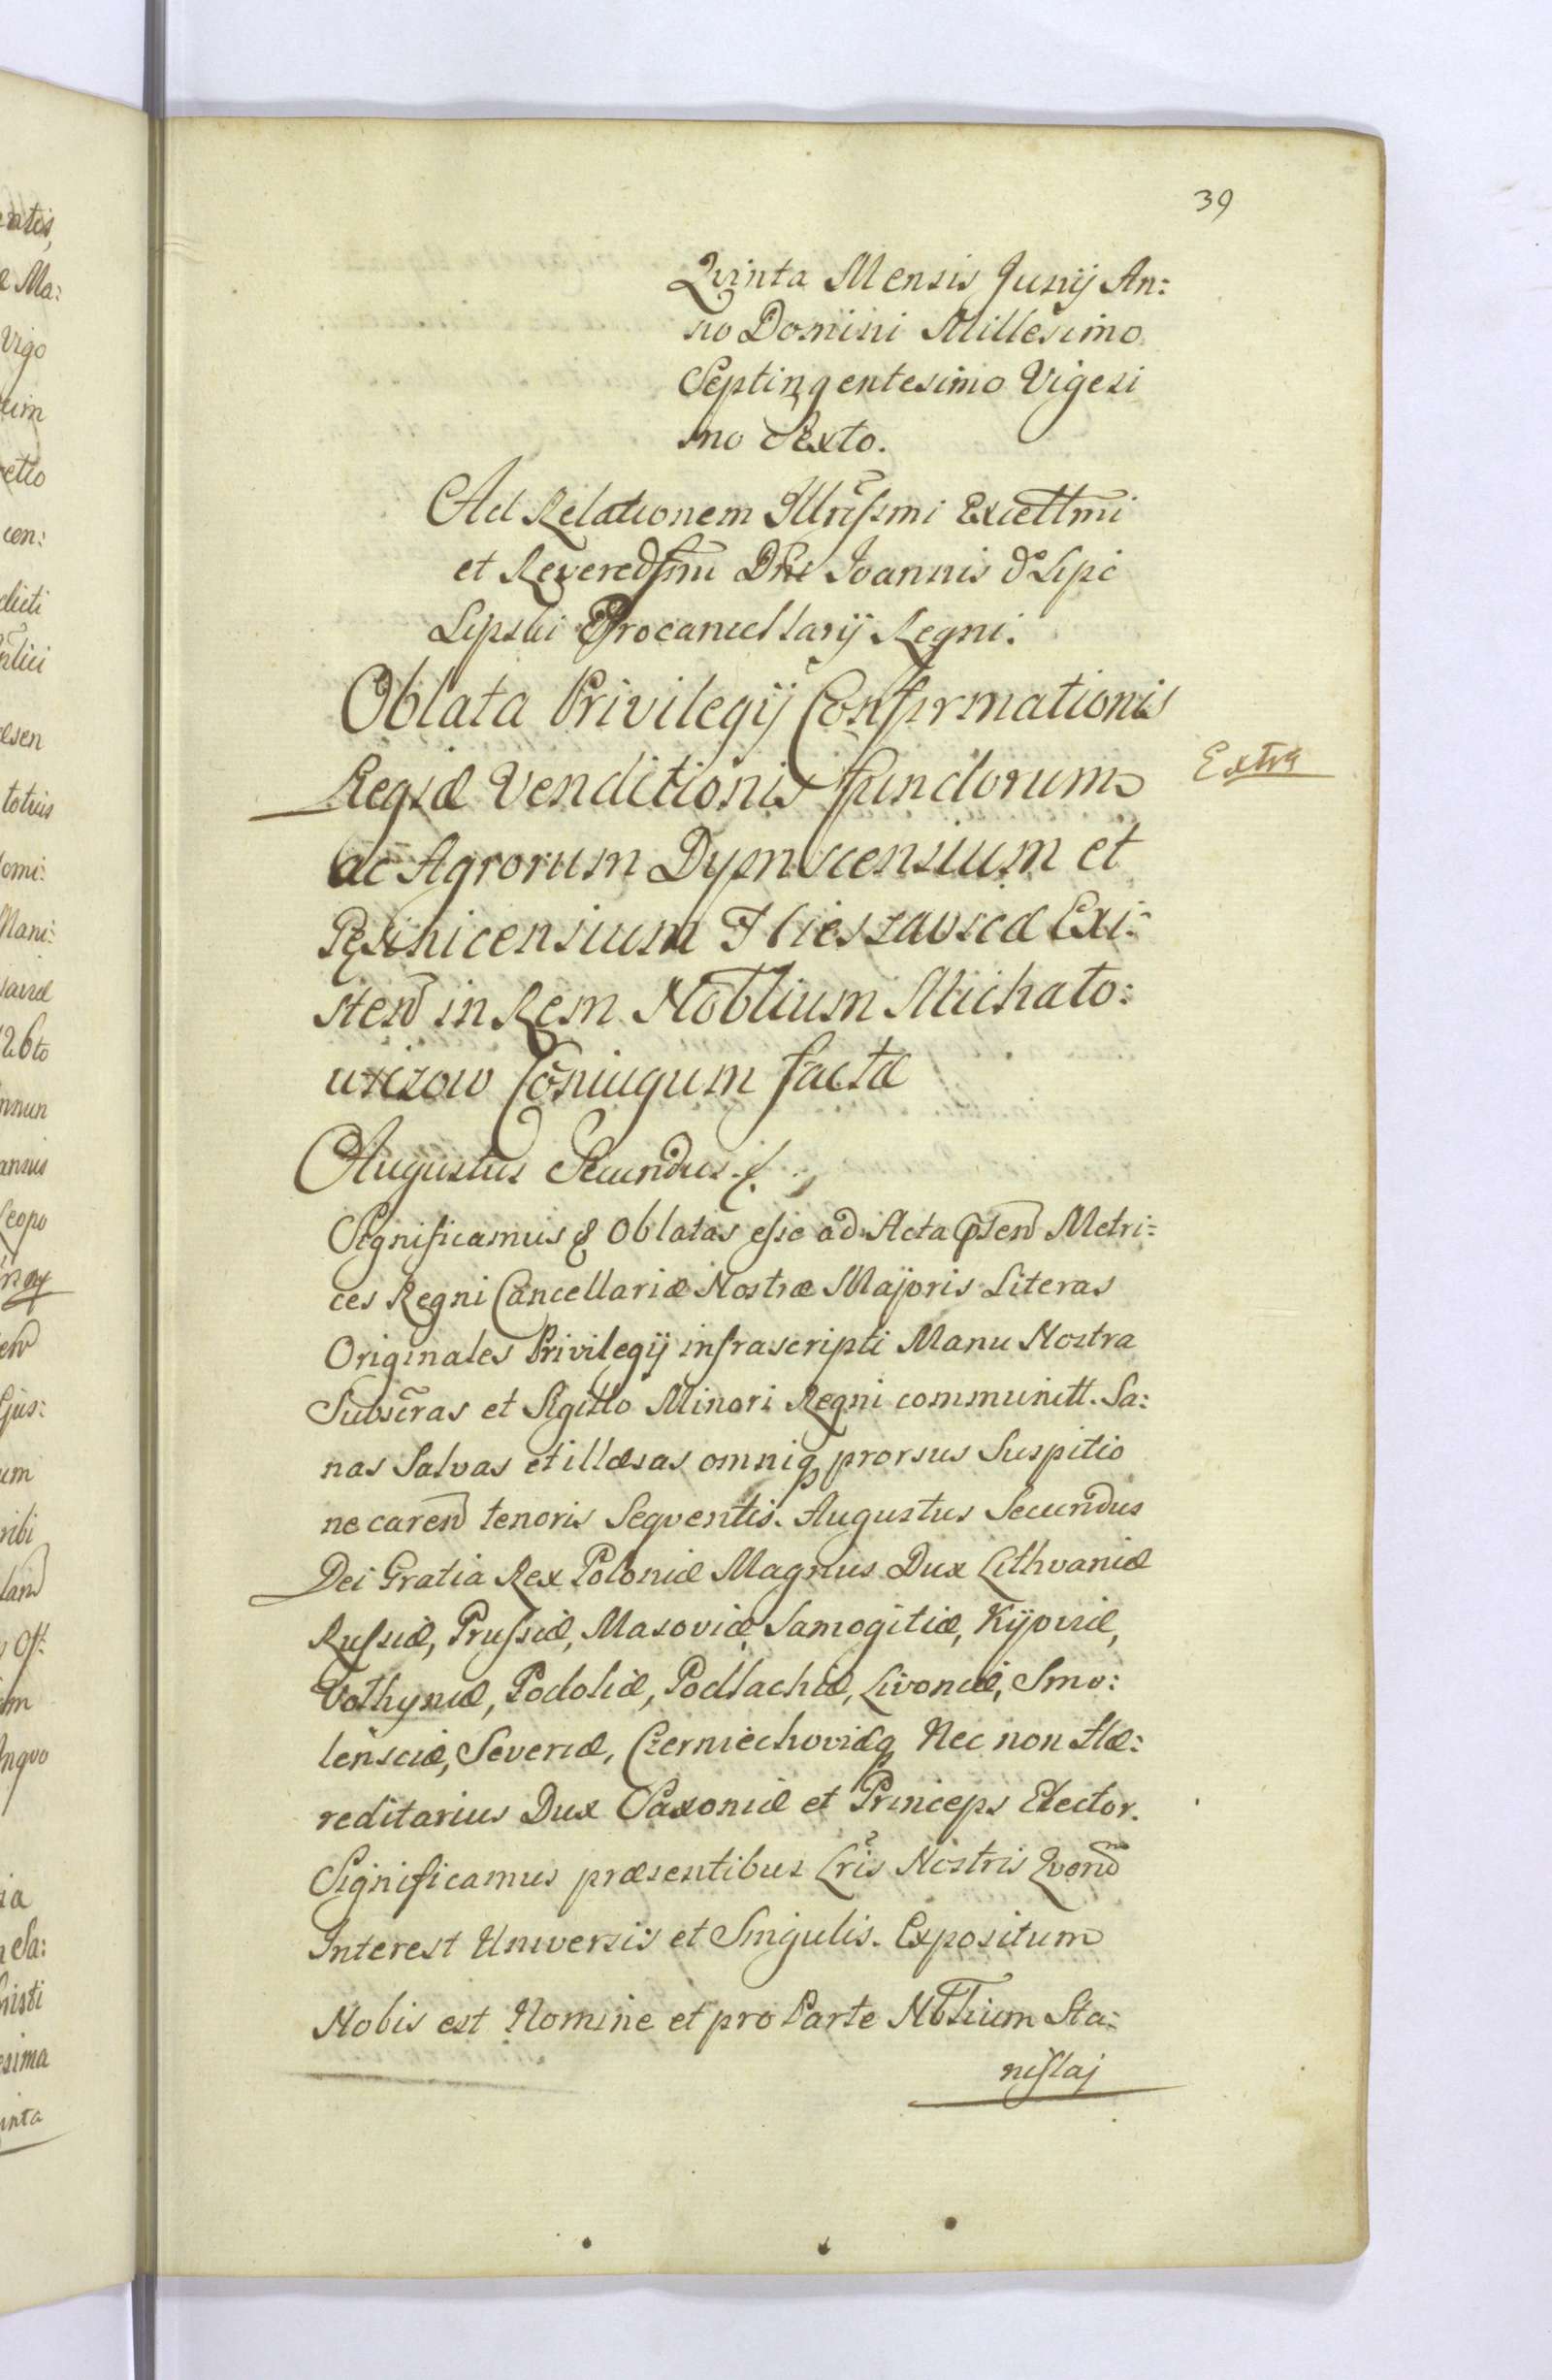 39
Qvinta Mensis Junij An:
no Domini Millesimo
Septingentesimo Vigesi
mo Sexto.
Ad Relationem Illrissmi Excellmi
et Reveredssmi Dni Joannis de Lipe
Lipski Procancellarij Regni.
Oblata Privilegij Confirmationis
Regiæ Venditionis fundorum
Extra
ac Agrorum Dypnscensium et
Exi:
sten in Rem Noblium Michało:
wszow Coniugum factæ
Augustus Secundus &.
Significamus & Oblatas esse ad Acta psten Metri:
ces Regni Cancellariæ Nostræ Majoris Literas
Originales Privilegij infrascripti Manu Nostra
Subscras et Sigillo Minori Regni communitt. Sa:
nas Salvas et illæsas omniq prorsus Suspitio
ne caren tenoris Seqventis. Augustus Secundus
Dei Gratia Rex Poloniæ Magnus Dux Lithvaniæ
Russiæ, Prussiæ, Masoviæ, Samogitiæ, Kijoviæ,
Volhyniæ, Podoliæ, Podlachiæ, Livoniæ, Smo:
lensciæ, Severiæ, Czerniechoviæq Nec non Hæ:
reditarius Dux Saxoniæ et Princeps Elector.
Significamus præsentibus Lris Nostris Qvoru
Interest Universis et Singulis. Expositum
Nobis est Nomine et pro Parte Nblium Sta:
nislaj